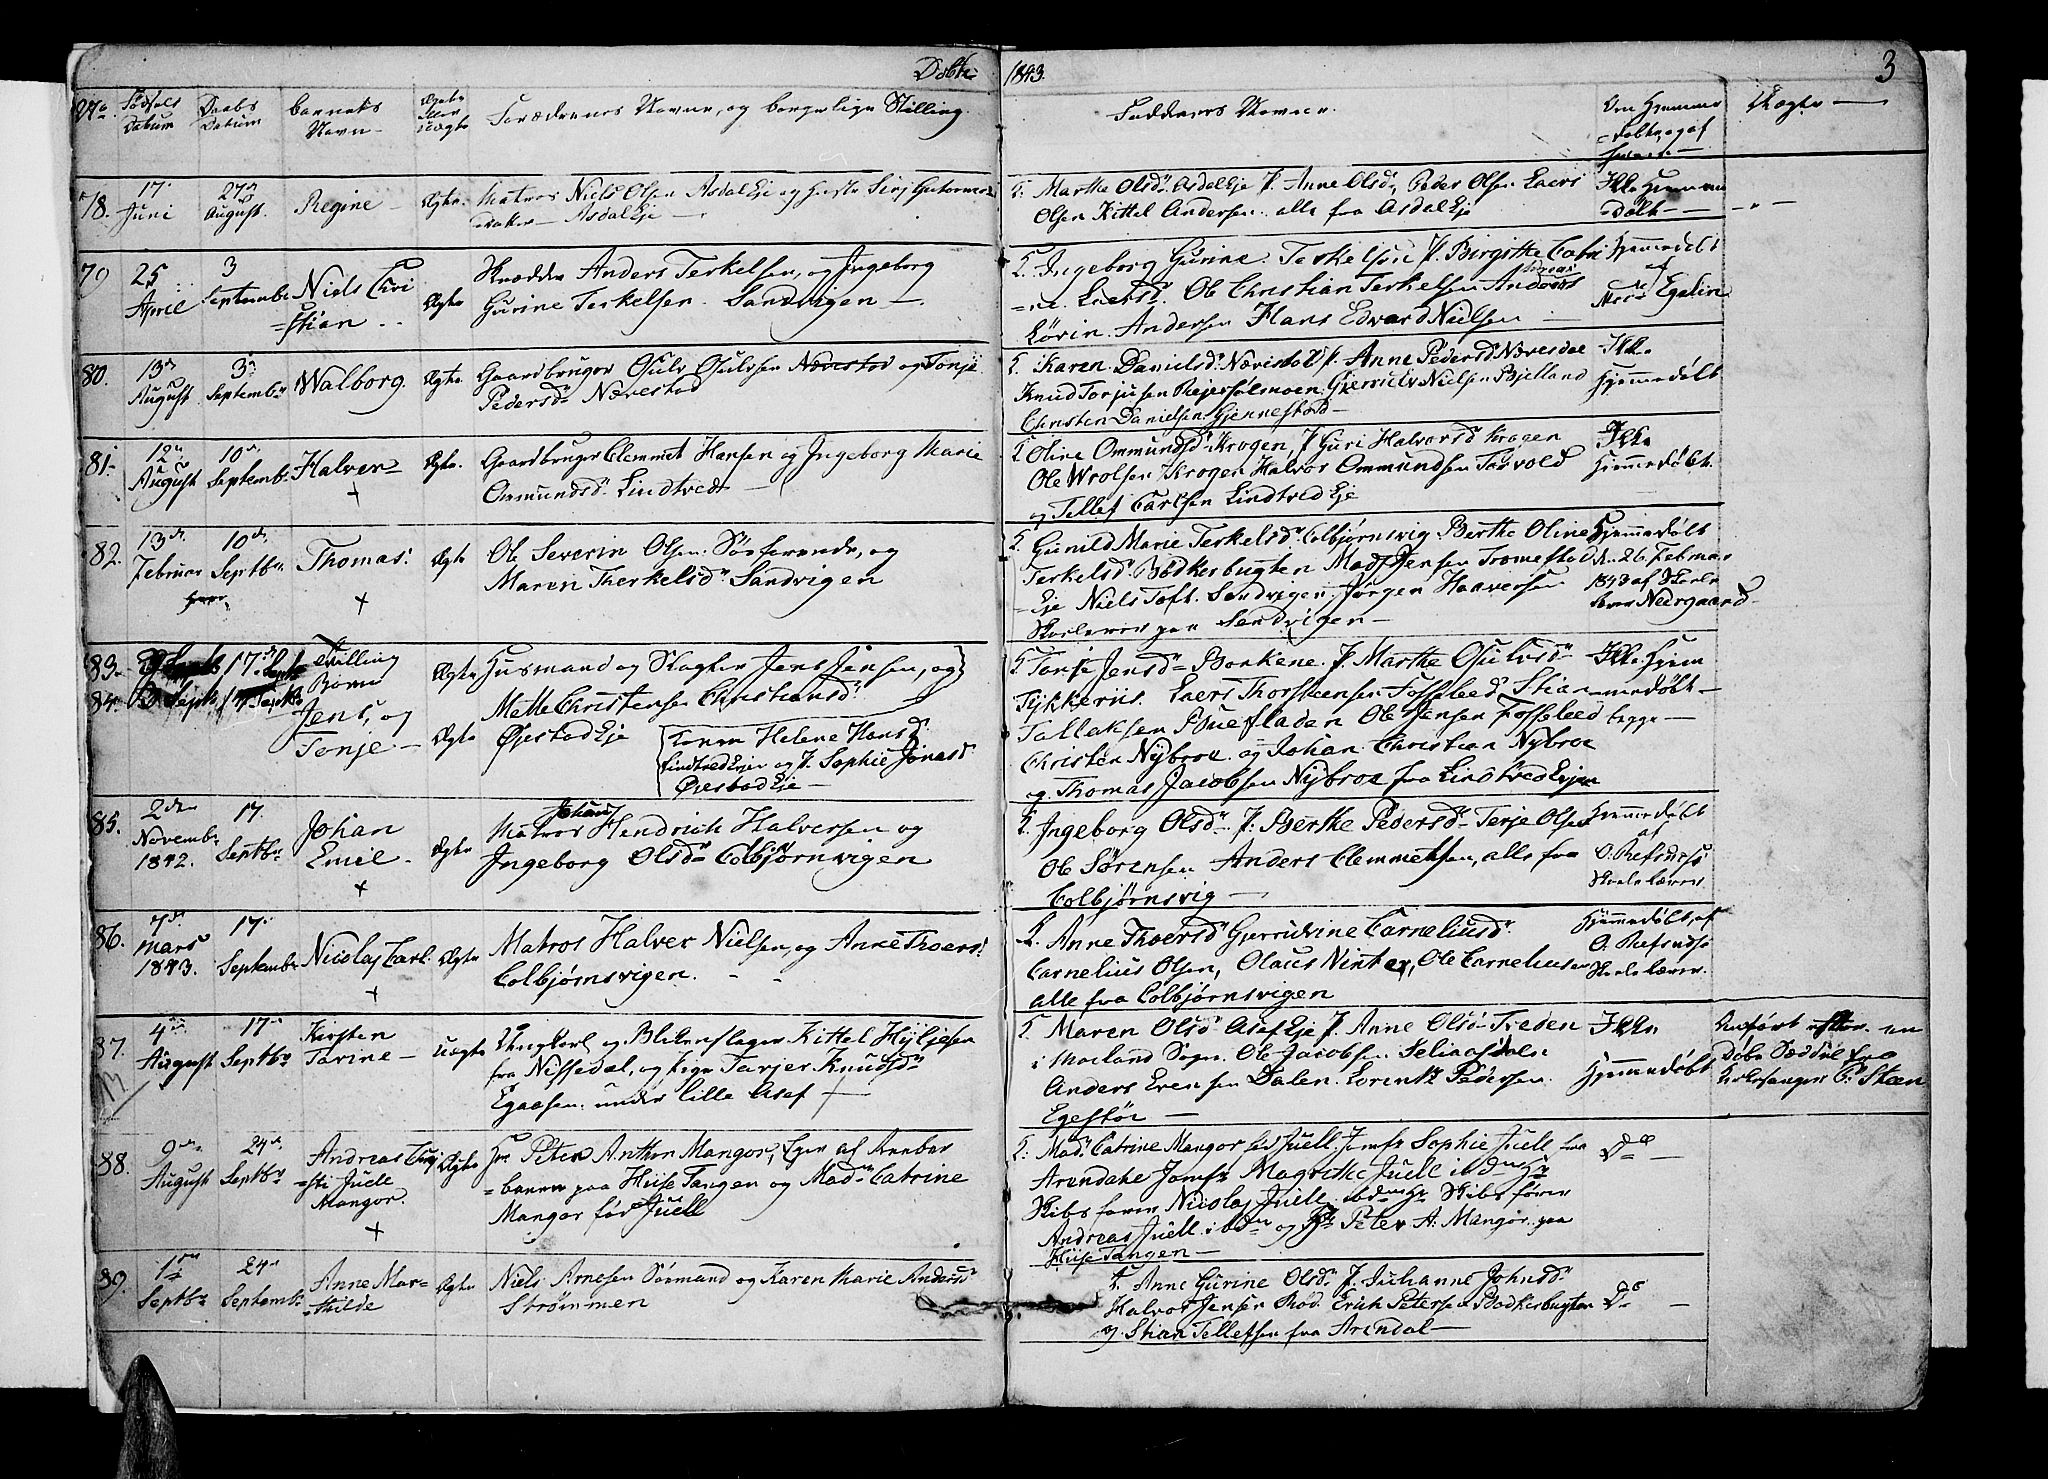 Døbte 1843. 3
No. Fødsels Datum Daabs Datum Barnets Navn Ægte eller uægte Forældrenes Navne, og borgerlige Stilling
Fadderes Navne Om Hjemme
Døbt, og af
78. 17. Juni 27de August. Regine Ægte. Matros Niels Olsen Asdal Eje og Hustr Siri
Asdal Eje
F. Marthe Olsd. Asdal Eje J. Anne Olsd. Peder Olsen Laers
Olsen Kittel Andersen alle fra Asdal Eje
Ikke Hjemme
Døbt
79 25 April 3 September Niels Chri
=stian Ægte Skrædder Anders Terkelsen, og Ingeborg
Gurine Terkelsen. Sandvigen
F. Ingeborg Gurine Terkelsen J. Birgitte Catri
=ne Laersd. Ole Christian Terkelsen Anders
Lövin. Andersen Hans Edvard Nielsen
Hjemmedøbt
af
Egelin
80. 13de August 3 Septembr Walborg. Ægte Gaardbruger Osulv Osulvsen Nævestad og Tonje
Pedersd. Nævestad
F. Karen Danielsd. Nævestad J. Anne Pedersd. Nævesdal
Knud Torjusen Rejersølmoen. Nielsen Bjelland
Christen Danielsen Gjennestad
Ikke
Hjemmedøbt
81. 12te August 10de Septemb. Halver Ægte. Gaardbruger Clemmet Hansen og Ingeborg Marie
Ommundsd. Lindtvedt
F Oline Ommundsd. Krogen, J. Guri Halvorsd Krogen
Ole Wrolsen Krogen Halvor Ommundsen Torvold
og Tellef Carlsen Lindtved Eje
Ikke
Hjemmedøbt.
82. 13de Februar 10de Septbr. Thomas. Ægte Ole Severin Olsen. Søefarende, og
Maren Therkelsd. Sandvigen
F. Gunild Marie Terkelsd. Colbjørnsvig Berthe Oline
Terkelsd. Bødkerbugten Mads Jensen Tromestad
Eje Niels Toft. Sandvigen. Jørgen Haaversen
Skolelærer paa Sandvigen
Hjemmedøbt
d. 26 Februar
1843 af Skole
lærer Neergaard
83. 17. Septb Tvilling
84. Børn
Jens, og
Tonje Ægte
Ægte Husmand og Slagter Jens Jensen, og
Mette Christensen Christensd.
Øiestad Eje Helene Hansd.
Lindtved Ejen og J. Sophie Jonasd.
Øiestad Eje
F. Tonje Jensd. Borkene. J. Marthe Osulvsd.
Tykkeriis. Laers Thorsteensen Fosseleed Stian
Tallaksen Buefladen Ole Hansen Fosseleed
Christen Nybroe og Johan Christian Nybroe
og Thomas Jacobsen Nybroe fra Lindtved Ejen
Ikke Hjem
=medøbt
begge
85. 2den Novembr 1842. 17. Septbr Johan
Emil Ægte Matros Johan Hendrich Halversen og
Ingeborg Olsd. Colbjørnvigen
F. Ingeborg Olsd. J. Berthe Pedersd. Terje Olsen
Ole Sørensen Anders Clemmetsen, alle fra
Colbjørnsvig
Hjemmedøbt
af
O. Refsnæs
Skolelærer
86. 7de Mars 1843. 17. Septembr Nicolaj Carl. Ægte Matros Halver Nielsen, og Anne Thoersd.
Colbjørnsvigen.
F. Anne Thoersd. Gjerudvine Carneliusd.
Carnelius Olsen, Olaus Ninter, Ole Carneliusen
alle fra Colbjørnsvigen
Hjemmedøbt, af
O. Refsnæs
Skolelærer.
87. 4de August 17de Septbr Kirsten
Tarine Uægte Ungkarl og Blikkenslager Kittel
fra Nissedal, og Pige Tarjer Knudsd.
Egaasen. under lille Asef
F. Maren Olsd. Asef Eje J. Anne Olsd. Treden
i Moeland Sogn. Ole Jacobsen Seliaasdalen
Anders Evensen Dalen. Lorentz Pedersen
Egestöe
Ikke
Hjemmedøbt
Anført efter en
Døbe Seddel fra
Kirkesanger P. Steen
88. 9de August 24de Septbr Andreas
Juell
Mangor. Ægte Hr. Peter Anthon Mangor, Eger af Annebar
=bareren paa Huse Tangen og Mad. Catrine
Mangor før Juell
F. Mad. Catrine Mangor fød Juell. Jomfr Sophie Juell fra
Arendahl Jomfr Magrethe Juell ibdm Hr
Skibsfører Nicolaj Juell. ibdm Hr Skibsfører
Andreas Juell. ibdm og Hr Peter A. Mangor paa
Huse Tangen
Do
89. 1ste Septbr 24de Septembr Anne Mar=
=thilde Ægte Niels Arnesen Sømand og Karen Marie Andersd
Strømmen
F. Anne Gurine Olsd. J. Suhanne Johnsd.
Halvor Jensen Röd. Erich Petersen Bødkerbugten
og Stian Tellefsen fra Arendal
Do